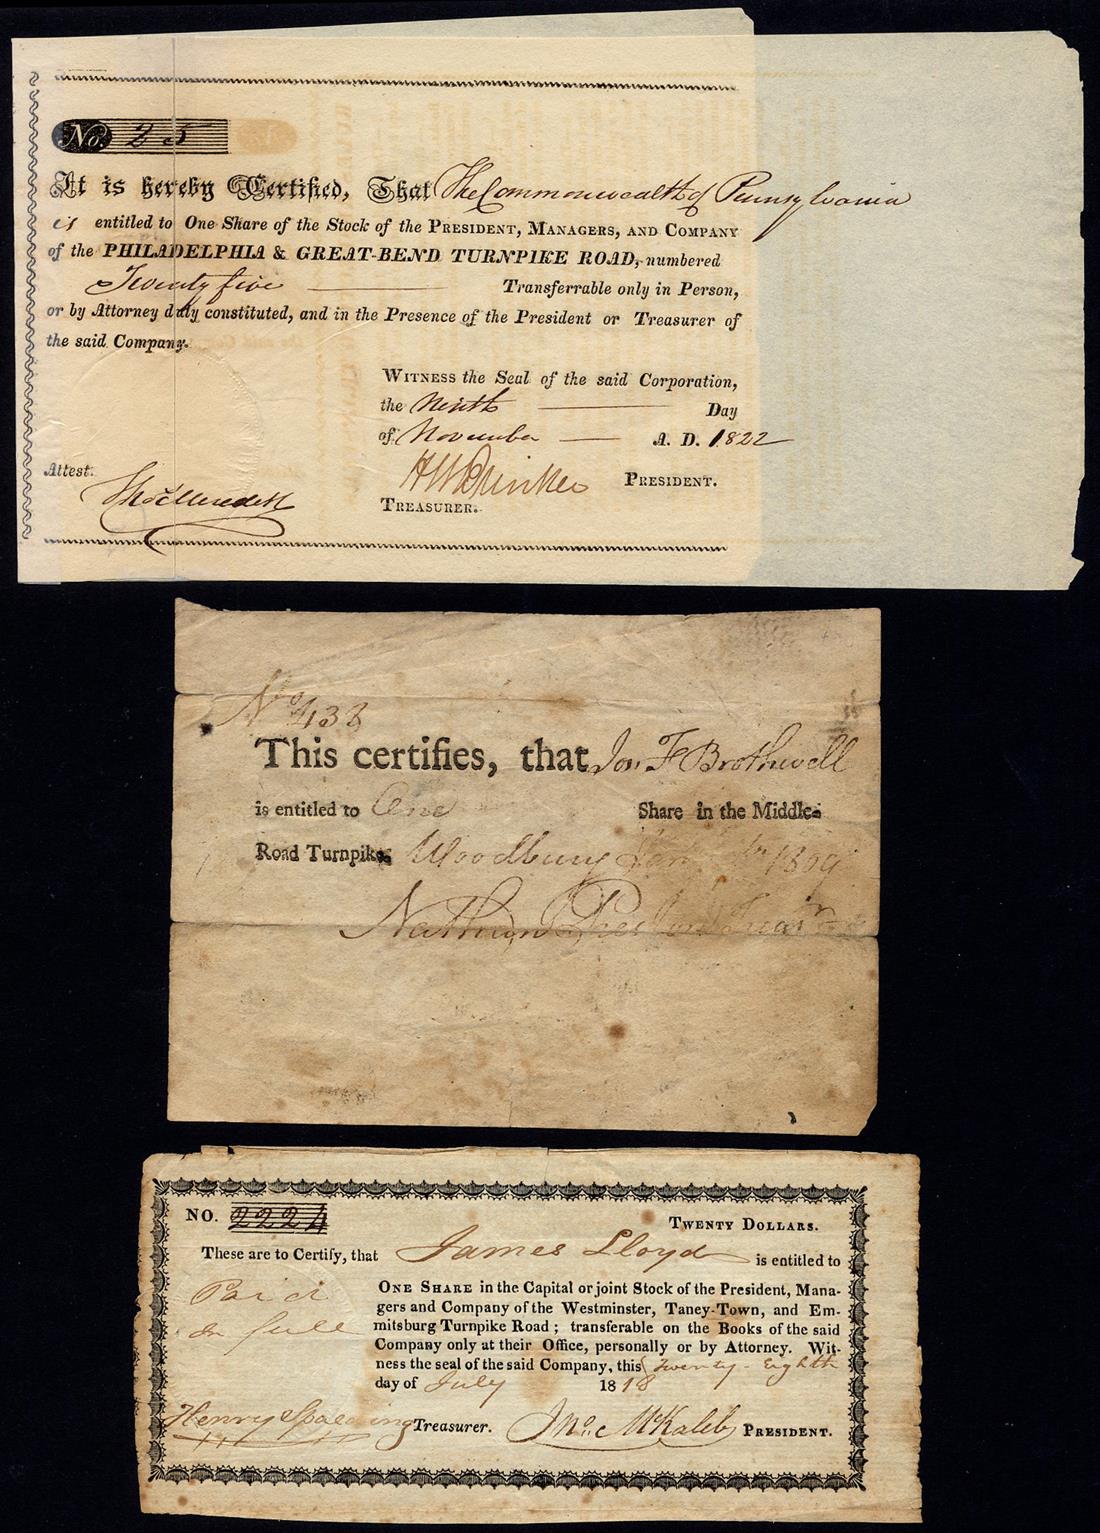 No. 25
It is hereby Certified, That The Commonwealth of Pennsylvania
is entitled to One Share of the Stock of the PRESIDENT, MANAGERS, AND COMPANY
of the PHILADELPHIA & GREAT-BEND TURNPIKE ROAD, numbered
Twenty five Transferrable only in Person,
or by Attorney duly constituted, and in the Presence of the President or Treasurer of
the said Company.
WITNESS the Seal of the said Corporation,
the Ninth Day
of November A. D. 1822
Attest:
HWDrinker PRESIDENT.
Tho Meredith
TREASURER.
No 438
This certifies, that Jos. F Brothwell
is entitled to One Share in the Middle-
Road Turnpike. Woodbury 1809
Nathan Preston Treasr
NO. 2224
TWENTY DOLLARS.
These are to Certify, that James Lloyd is entitled to
ONE SHARE in the Capital or joint Stock of the President, Mana-
gers and Company of the Westminster, Taney-Town, and Em-
mitsburg Turnpike Road; transferable on the Books of the said
Company only at their Office, personally or by Attorney. Wit-
ness the seal of the said Company, this Twenty-Eighth
day of July 1818
Paid
In full
Henry Spalding Treasurer. Jno. McKaleb PRESIDENT.